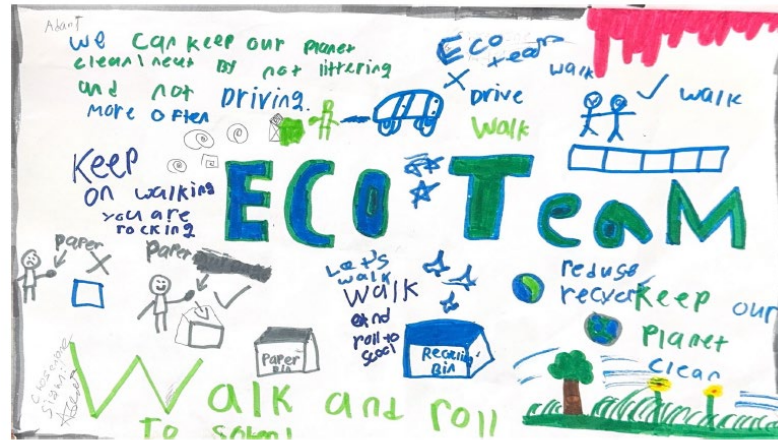 Adant
we can keep our planet
clean/neat By not littering
and not Driving.
more often
Eco
team
walk
Drive
walk
walk
Keep
on walking
you are
rocking
ECO TeaM
paper
paper
Let's
walk
walk
and
roll to
scool
reduse
recycle
Keep our
planet
clean
Paper
Bin
Recycling
Bin
Walk and roll
To School